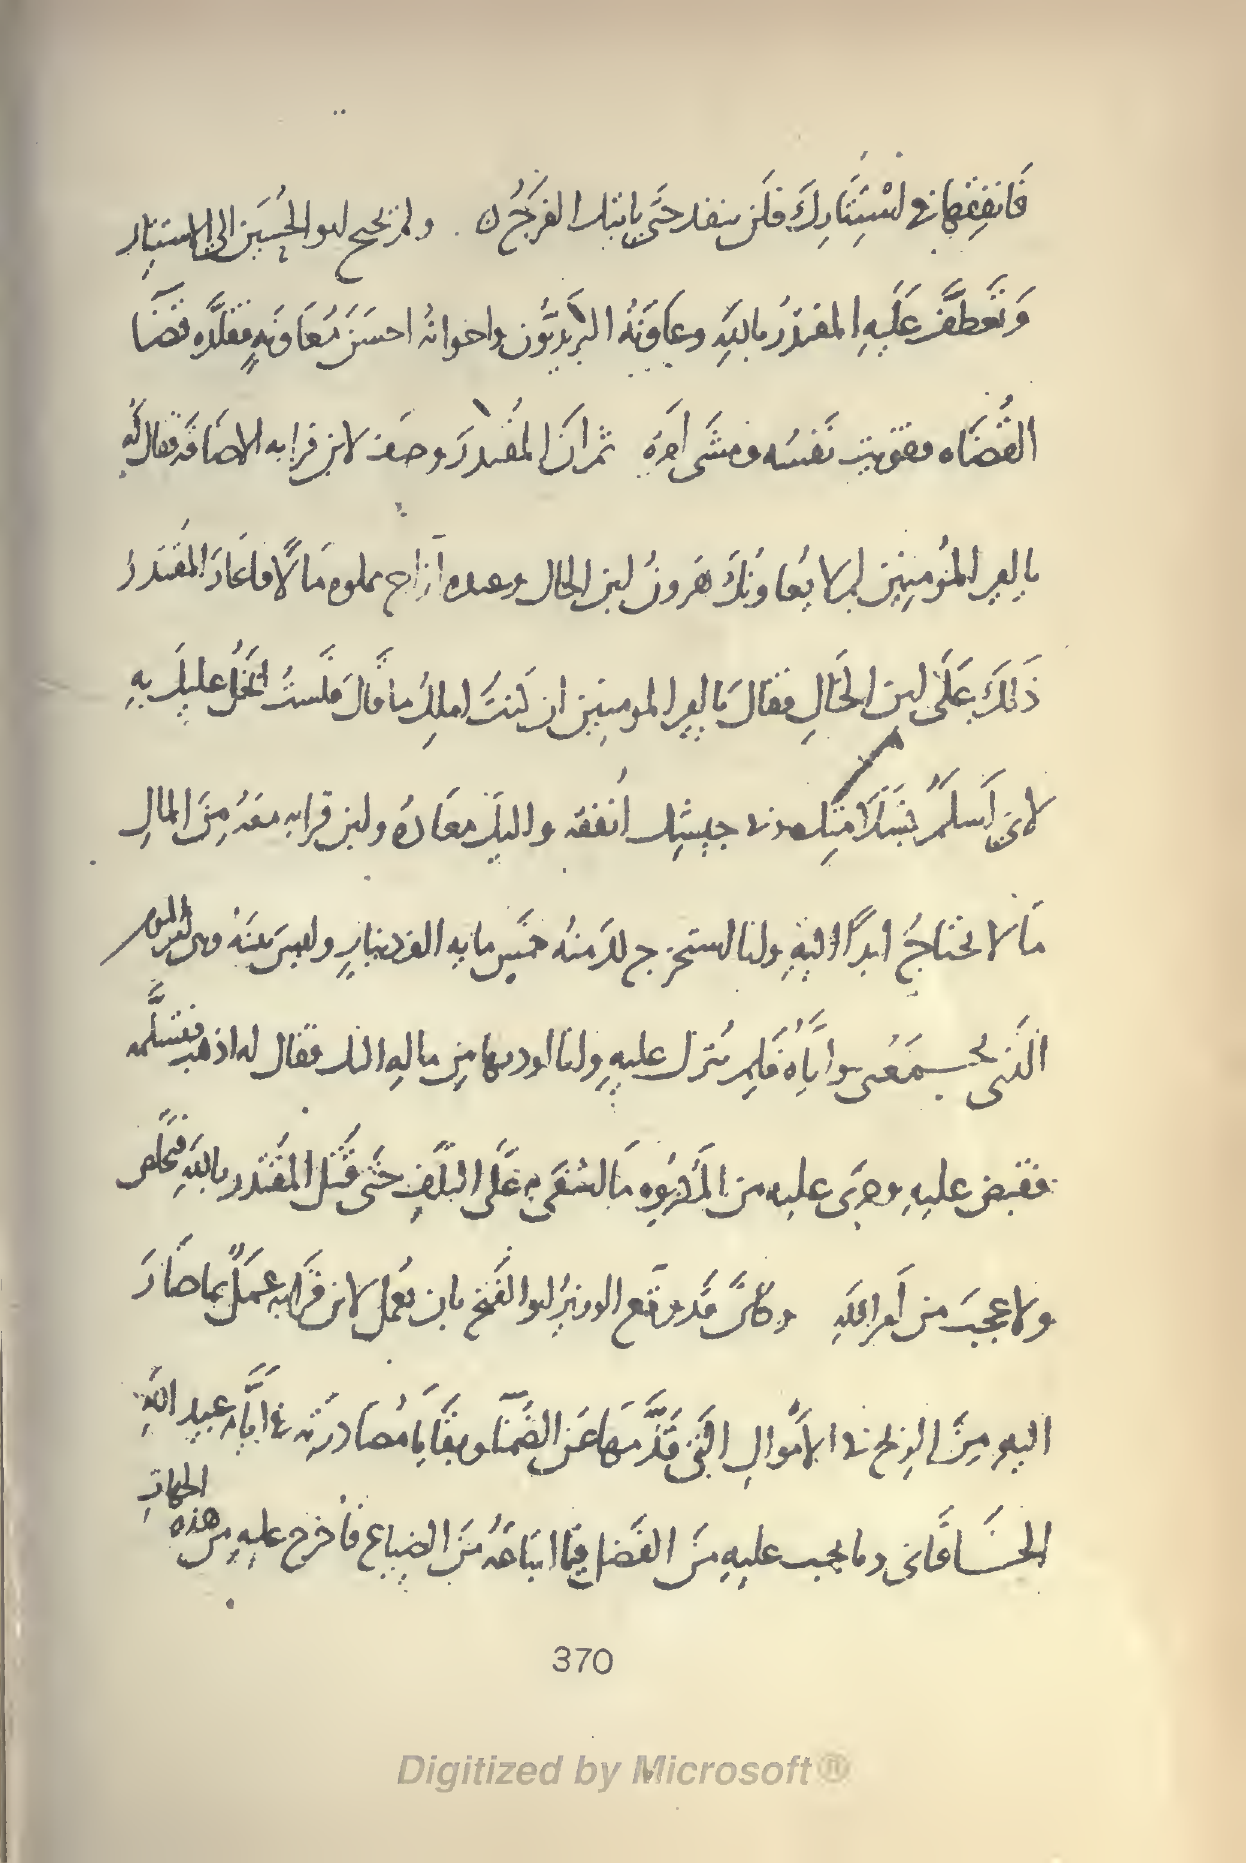 فَانفِقها في اسْتِتَارِكَ فلَن ينفد حتَى ياتيك الفرَجُ ن ولم يحتج ابو الحُسَين الى الاستتار
وَتَعطَّفَ عَلَيهِ المقتدرُ باللهِ وعَاوَنَهُ البَريديُّون واخوانهُ احسَنَ مُعَاوَنةٍ فقلَّده قضَا
القُضَاه فقويت نَفسُه ومشَى امرُه ثم ان المُقتدرَ وصفَ لابن قرابه الاضَاقة فقال لَه
يا امير المُومِنِين لم لا يُعاونُكَ هَرونُ ابن الخال وعنده آزاج مملوه مَالًا فاعَادَ المُقتَدرُ
ذَلكَ عَلَى ابن الخَالِ فقالَ يا امير المومنِين ان كنتُ املِكُ ما قَالَ فلَستُ ابخَلُ عليك بهِ
لاني اَسلمُ بسَلَامَتِك في جيشِك اُنفقه واليك معَادُه وابن قرابه معَهُ مِنَ المالِ
مَا لا يحتاجُ ابدًا اليهِ وانا استخرج لك منهُ خمسَ مايه الف دينارٍ وليسَ بينَهُ وبين اليوم
الَّذي يجمَعُني وايَّاهُ فَلِم يُترك عليهِ وانا اوديها مِن مالهِ اليك فقال له اذهب فتسَلَّمه
فقبض عليهِ وجَرَى عليه من المَكرُوه مَا اشفَى به عَلَى التَلَفِ حتَّى قُتِل المقتَدر باللهِ فتخَلص
ولا عجبَ من اَمر اللهِ وكانَ قَد وقَّع الوزيرُ ابو الفَتح بان يُعمَل لابن قَرَابه عمَلٌ بما صَارَ
اليه مِنَ الربح في الاَموالِ الَّتي قَدَّمهَا عَن الضُمنَا وبقَايَا مُصَادرَتِه في ايَّام عبيد اللهِ
الخَاقَاني وما يجب عليهِ مِنَ الفَضل فيما ابتَاعَهُ مِنَ الضياع فاُخرج عليهِ مِن هذه الجهاتِ
370
Digitized by Microsoft®